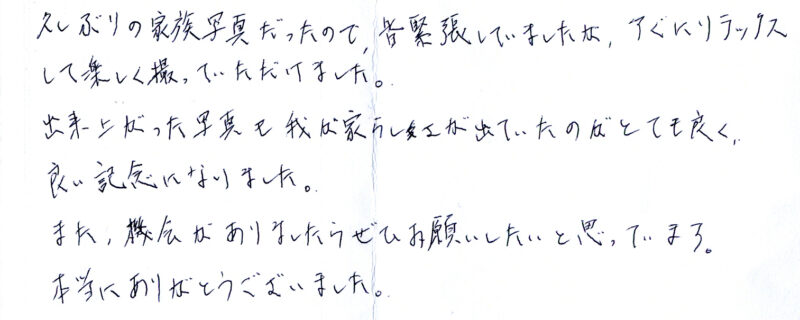 久しぶりの家族写真だったので、皆緊張していましたが、すぐにリラックス
して楽しく撮っていただけました。
出来上がった写真も我が家らしさが出ていたのがとても良く、
良い記念になりました。
また、機会がありましたらぜひお願いしたいと思っています。
本当にありがとうございました。